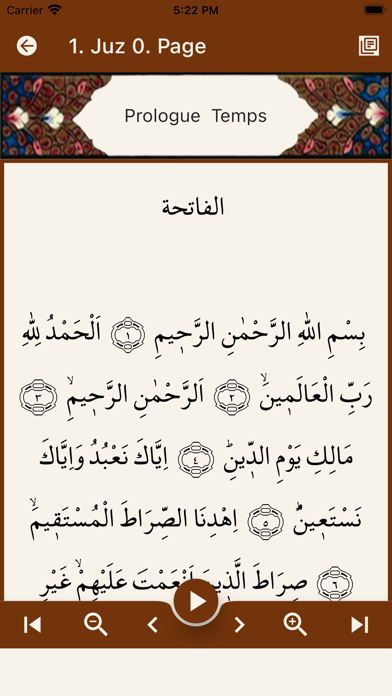 Carrier 5:22 PM
1. Juz 0. Page
Prologue Temps
الفاتحة
بِسْمِ اللّٰهِ الرَّحْمٰنِ الرَّح۪يمِ ١ اَلْحَمْدُ لِلّٰهِ
رَبِّ الْعَالَم۪ينَۙ ٢ اَلرَّحْمٰنِ الرَّح۪يمِۙ ٣
مَالِكِ يَوْمِ الدّ۪ينِۜ ٤ اِيَّاكَ نَعْبُدُ وَاِيَّاكَ
نَسْتَع۪ينُۜ ٥ اِهْدِنَا الصِّرَاطَ الْمُسْتَق۪يمَۙ
٦ صِرَاطَ الَّذ۪ينَ اَنْعَمْتَ عَلَيْهِمْۙ غَيْرِ